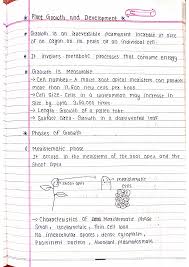 * Plant Growth and Development
* Growth is an irreversible permanent increase in size
of an organ or its parts or an individual cell.
* It involves metabolic processes that consume energy
* Growth is Measurable
→ Cell number - A maize root apical meristem can produce
more than 17,500 new cells per hour
→ Cell Size - Cells in a watermelon may increase in
Size by upto 3,50,000 times
→ Length - Growth of a pollen tube
→ Surface Area - Growth in a leaf
* Phases of Growth
① Meristematic phase
It occurs in the meristems of the root apex and the
Shoot apex
shoot apex
meristematic
cells
→ Characteristics of Meristematic phase
Small, isodiametric, Thin cell wall
No intercellular spaces, dense cytoplasm,
Prominent nucleus, Abundant plasmodesmata